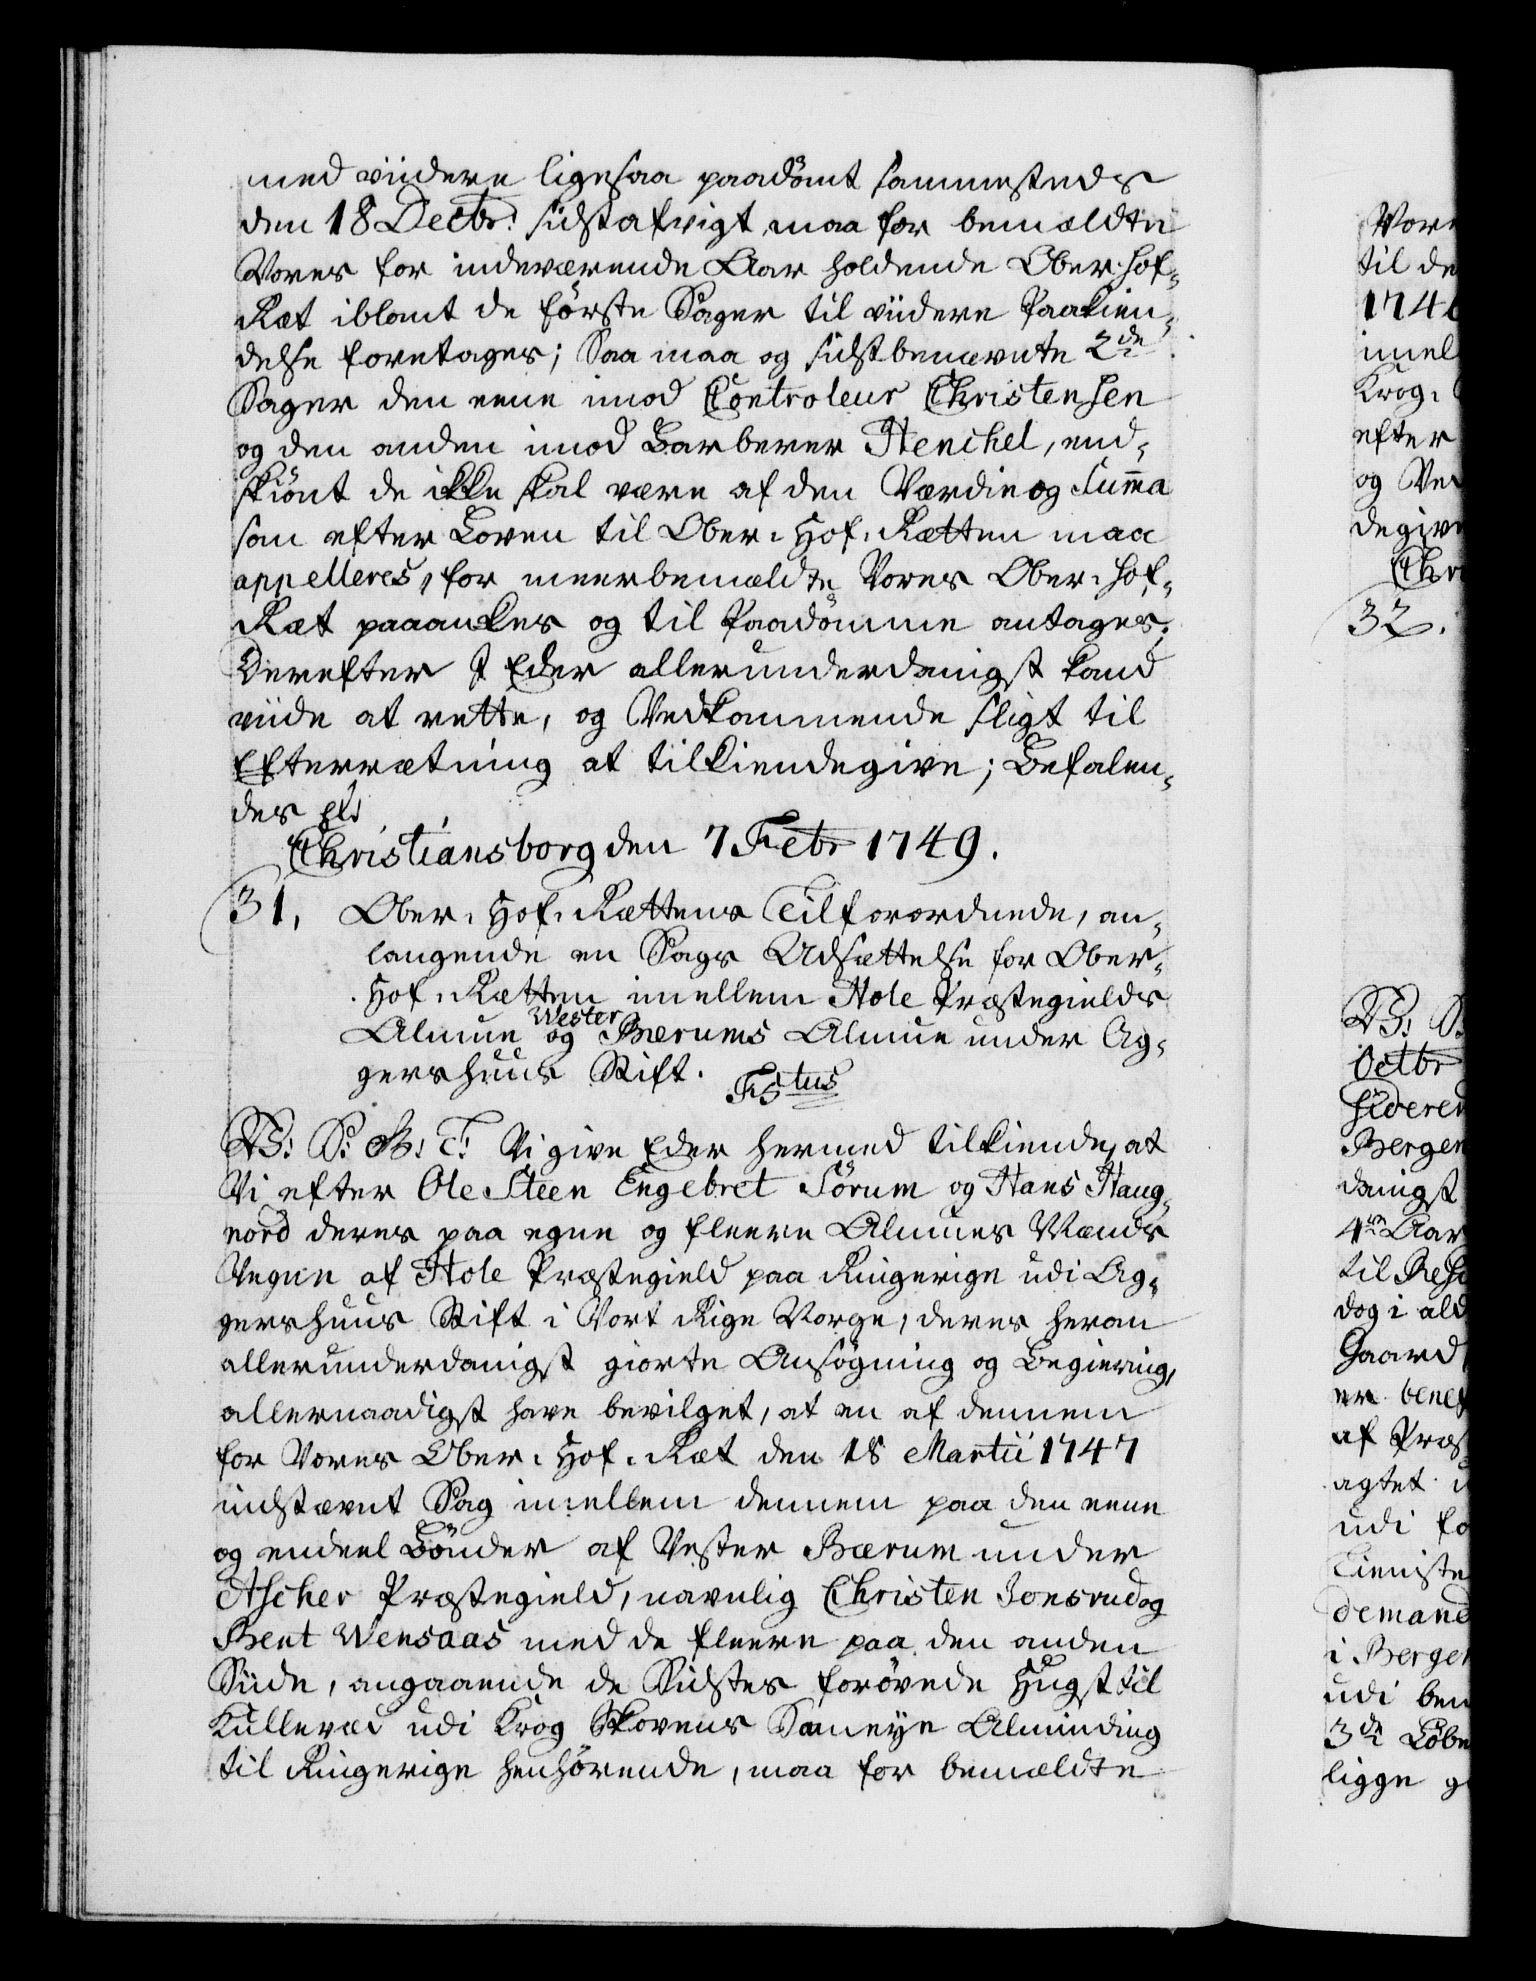 med viidere ligesaa paadömt sammesteds
den 18 Decbr: sidstafvigt, maa for bemældte
Vores for indeværende Aar holdende Ober-Hof-
Ræt iblant de förste Sager til viidere Paakien-
delse foretages; Saa maa og sidstbenævnte 2de
Sager den eene imod Controleur Christensen
og den anden imod Barberer Henchel, end-
skiönt de ikke skal være af den Værdie og Summa
som efter Loven til Ober-Hof-Rætten maa
appelleres, for meerbemældte Vores Ober-Hof-
Ræt paaankes og til Paadömme antages;
Derefter I Eder allerunderdanigst kand
viide at rette, og Vedkommende sligt til
Efterrætning at tilkiendegive; Befalen-
des etc
Christiansborg den 7 Febr 1749.
31. Ober-Hof-Rættens Tilforordnede, an-
langende en Sags Udsættelse for Ober-
Hof-Rætten imellem Hole Præstegields
Almue og Wester Bærums Almue under Ag-
gershuus Stift.
F5tus
V: S: G: T: Vi give Eder hermed tilkiende, at
Vi efter Ole Steen Engebret Sörum og Hans Haug-
nord deres paa egne og fleere Almues Mænds
Vegne af Hole Præstegield paa Ringerige udi Ag-
gershuus Stift i Vort Rige Norge, deres herom
allerunderdanigst giorte Ansögning og Begiering,
allernaadigst have bevilget, at en af dennem
for Vores Ober-Hof-Ræt den 18 Martii 1747
indstævnt Sag imellem dennem paa den eene
og endeel Bönder af Vester Bærum under
Ascher Præstegield, navnlig Christen Jonsrud og
Bent Wensaas med de fleere paa den anden
Siide, angaaende de Sidstes forövede Hugst til
Kulleræd udi Krog Skovens Sameye Alminding
til Ringerige henhörende, maa for bemældte
til de
imel
Krog-
efter
og Ved
degive
Chri
32.
Octbr
sideren
Bergen
danigst
4re Aar
dog i ald
Gaard
er benef
af Præs
agtet
udi fo
Tieniste
demand
i Bergen
udi bem
3de Löbe
ligge g